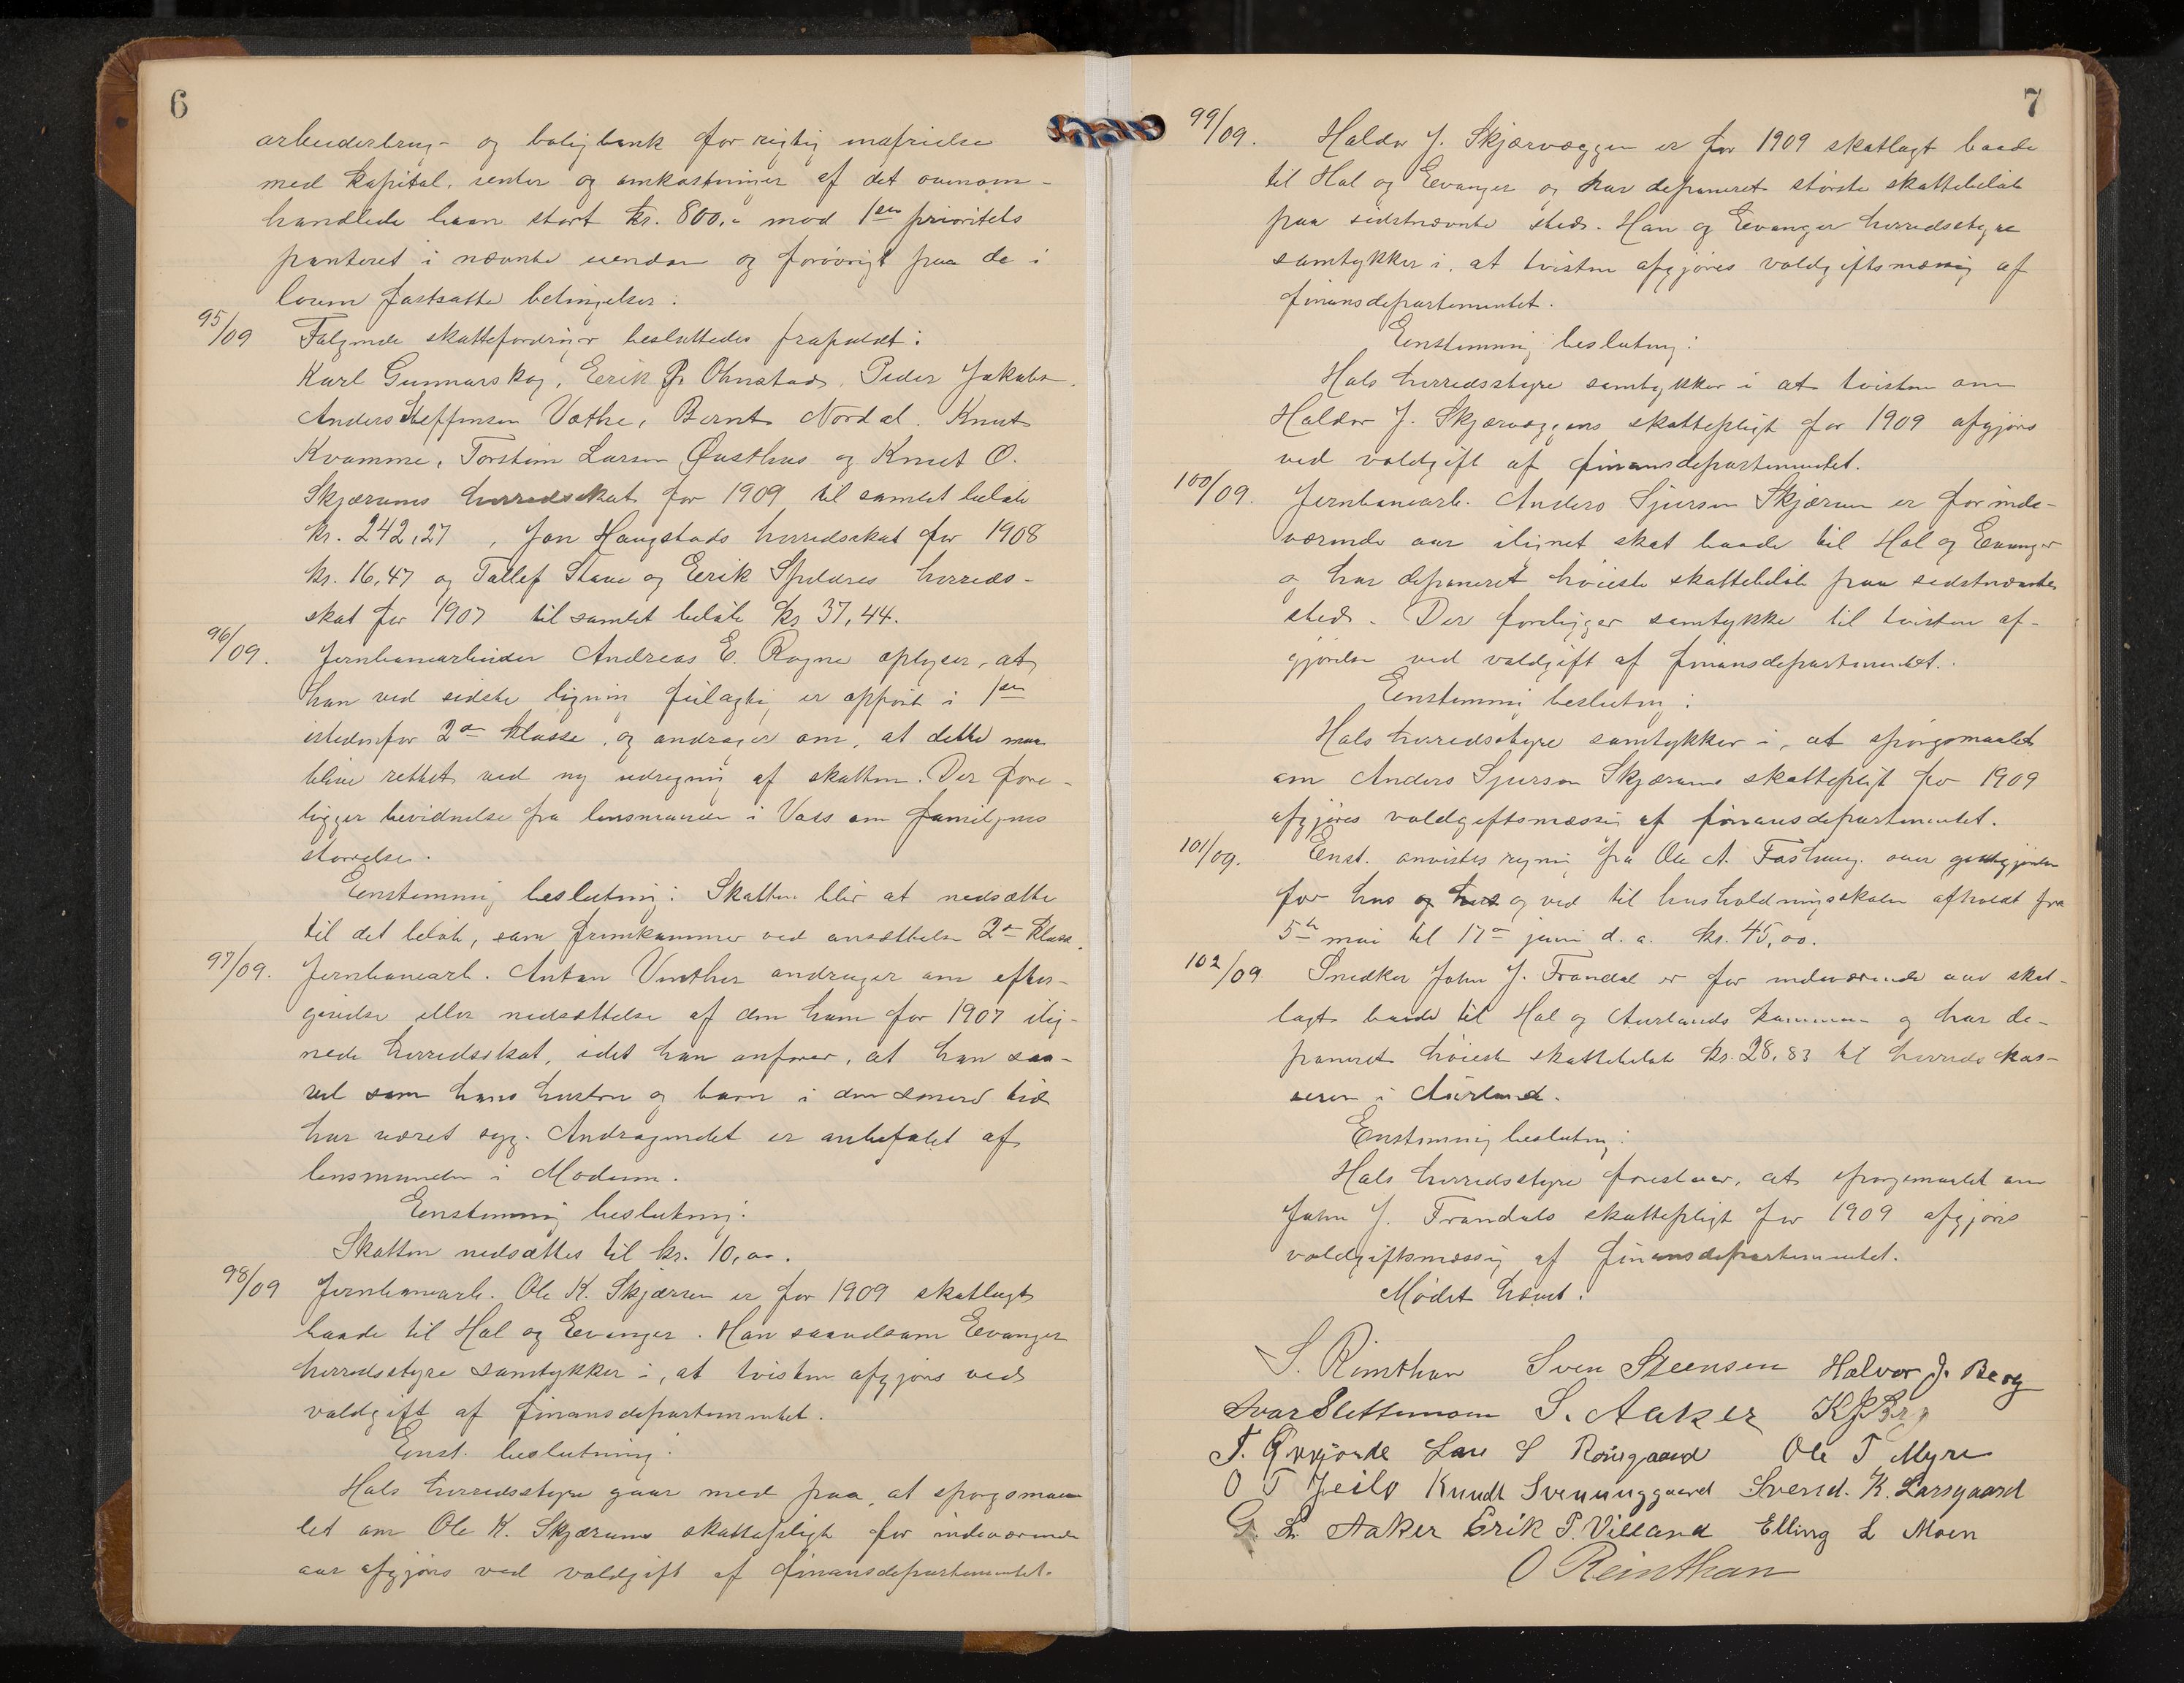 6
arbeiderbrug- og boligbank for rigtig
med kapital, renter og omkostninger af det ovenom-
handlede laan stort kr. 800,- mod 1ste prioritets
panteret i nævnte eiendom og forøvrigt paa de i
loven fastsatte betingelser.
95/09 Følgende skattefordringer besluttedes frafaldt:
Karl Gunnarskog, Eerik P. Ohnstad, Peder Jakobs.
Anders Steffensen Vathe, Bernt Nordal. Knut
Kvamme, Torstein Larsen Qusthus og Knut O.
Skjærums herredsskat for 1909 til samlet beløb
kr. 242,27, Jon Haugstads herredsskat for 1908
kr. 16,47 og Tallef Stave og Eerik herreds-
skat for 1907 til samlet beløb kr 37,44.
96/09. Jernbanearbeider Andreas E. Rogne oplyser, at
han ved sidste ligning feilagtig er opført i 1ste
istedenfor 2den klasse, og andrager om, at dette maa
blive rettet ved ny udregning af skatten. Der fore-
ligger bevidnelse fra lensmanden i Voss om familjens
størrelse.
Eenstemmig beslutning: Skatten blir at nedsætte
til det beløb, som fremkommer ved ansættelse 2den klasse.
97/09. Jernbanearb. Anton Vinther andrager om efter-
givelse eller nedsættelse af den ham for 1907 ilig-
nede herredsskat, idet han anfører, at han saa-
vel som hans hustru og barn i den senere tid
har været syg. Andragendet er anbefalet af
lensmanden i Modum.
Eenstemmig beslutning:
Skatten nedsættes til kr. 10,00.
98/09 Jernbanearb. Ole K. Skjærum er for 1909 skatlagt
baade til Hol og Eevanger. Han saavelsom Eevanger
herredsstyre samtykker i, at tvisten afgjøres ved
voldgift af finansdepartementet.
Enst. beslutning:
Hols herredsstyre gaar med paa, at spørgsmaa-
let om Ole K. Skjærums skattepligt for indeværende
aar afgjøres ved voldgift af finansdepartementet.
7
99/09. Haldor J. Skjærvæggen er for 1909 skatlagt baade
til Hol og Eevanger og har deponeret største skattebeløb
paa sidstnævnte sted. Han og Eevanger herredsstyre
samtykker i, at tvisten afgjøres voldgiftsmæssig af
finansdepartementet.
Eenstemmig beslutning:
Hols herredsstyre samtykker i at tvisten om
Haldor J. Skjærvæggens skattepligt for 1909 afgjøres
ved voldgift af finansdepartementet.
100/09. Jernbanearb. Anders Sjurson Skjærum er for inde-
værende aar ilignet skat baade til Hol og Eevanger
og har deponeret høieste skattebeløb paa sidstnævnte
sted. Der foreligger samtykke til tvistens af-
gjørelse ved voldgift af finansdepartementet.
Eenstemmig beslutning:
Hols herredsstyre samtykker i, at spørgsmaalet
om Anders Sjurson Skjærums skattepligt for 1909
afgjøres voldgiftsmæssig af finansdepartementet.
101/09. Enst. anvistes regning fra Ole A. over godtgjørelse
for hus og og ved til husholdningsskolen afholdt fra
5te mai til 17de juni d. a. kr. 45,00.
102/09 Snedker John J. Frondal er for indeværende aar skat-
lagt baade til Hol og Aurlands kommune og har de-
poneret høieste skattebeløb kr. 28,83 til herredskas-
seren i Aurland.
Eenstemmig beslutning:
Hols herredsstyre foreslaar, at spørgsmaalet om
John J. Frondals skattepligt for 1909 afgjøres
voldgiftsmæssig af finansdepartementet.
Mødet hævet.
S. Rimthan Sven Steensen Halvor J. Berg
Ivar Slettemoen S. Aaker K J Berg
T. Lars S Rousgaard Ole T Myre
O T Jeilo Knudt Svenunggaard Svend. K. Larsgaard
G. L. Aaker Erik T. Villand Elling L Moen
O Reinthan